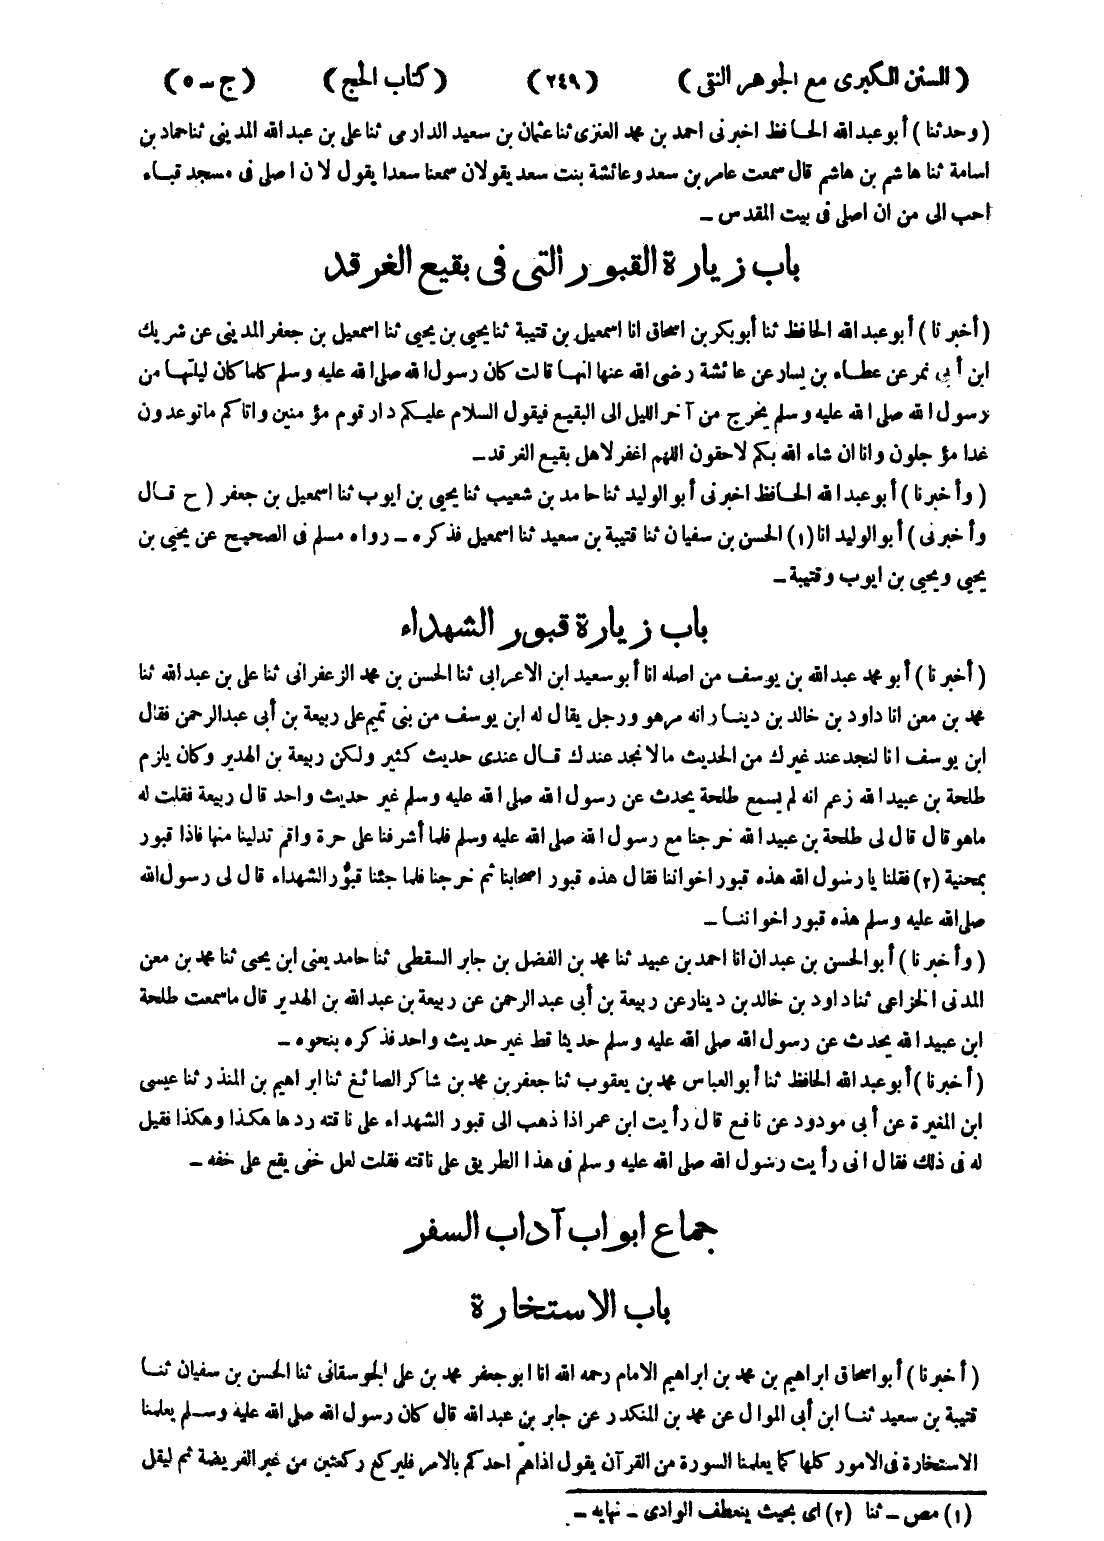 ( السنن الكبرى مع الجوهر النقى ) ( ٢٤٩ ) ( كتاب الحج ) ( ج ــ ٥ )
( وحدثنا ) أبو عبد الله الحافظ اخبرنى احمد بن محمد العنزى ثنا عثمان بن سعيد الدارمى ثنا على بن عبد الله المدينى ثنا حماد بن
اسامة ثنا هاشم بن هاشم قال سمعت عامر بن سعد وعائشة بنت سعد يقولان سمعنا سعدا يقول لان اصلى فى مسجد قباء
احب الى من ان اصلى فى بيت المقدس ـ
باب زيارة القبور التى فى بقيع الغرقد
( أخبرنا ) أبو عبد الله الحافظ ثنا أبو بكر بن اسحاق انا اسمعيل بن قتيبة ثنا يحيى بن يحيى ثنا اسمعيل بن جعفر المدينى عن شريك
ابن أبى نمر عن عطاء بن يسار عن عائشة رضى الله عنها انها قالت كان رسول الله صلى الله عليه وسلم كلما كان ليلتها من
رسول الله صلى الله عليه وسلم يخرج من آخر الليل الى البقيع فيقول السلام عليكم دار قوم مؤمنين واتاكم ما توعدون
غدا مؤجلون وانا ان شاء الله بكم لاحقون اللهم اغفر لاهل بقيع الغرقد ـ
( وأخبرنا ) أبو عبد الله الحافظ اخبرنى أبو الوليد ثنا حامد بن شعيب ثنا يحيى بن ايوب ثنا اسمعيل بن جعفر ( ح قال
وأخبرنى ) أبو الوليد انا (١) الحسن بن سفيان ثنا قتيبة بن سعيد ثنا اسمعيل فذكره ـ رواه مسلم فى الصحيح عن يحيى بن
يحيى ويحيى بن ايوب وقتيبة ـ
باب زيارة قبور الشهداء
( أخبرنا ) أبو محمد عبد الله بن يوسف من اصله انا أبو سعيد ابن الاعرابى ثنا الحسن بن محمد الزعفرانى ثنا على بن عبد الله ثنا
محمد بن معن انا داود بن خالد بن دينار انه مر هو ورجل يقال له ابن يوسف من بنى تميم على ربيعة بن أبى عبد الرحمن فقال
ابن يوسف انا لنجد عند غيرك من الحديث ما لا نجد عندك قال عندى حديث كثير ولكن ربيعة بن الهدير وكان يلزم
طلحة بن عبيد الله زعم انه لم يسمع طلحة يحدث عن رسول الله صلى الله عليه وسلم غير حديث واحد قال ربيعة فقلت له
ما هو قال قال لى طلحة بن عبيد الله خرجنا مع رسول الله صلى الله عليه وسلم فلما أشرفنا على حرة واقم تدلينا منها فاذا قبور
بمحنية (٢) فقلنا يا رسول الله هذه قبور اخواننا فقال هذه قبور اصحابنا ثم خرجنا فلما جئنا قبور الشهداء قال لى رسول الله
صلى الله عليه وسلم هذه قبور اخواننا ـ
( وأخبرنا ) أبو الحسن بن عبدان انا احمد بن عبيد ثنا محمد بن الفضل بن جابر السقطى ثنا حامد يعنى ابن يحيى ثنا محمد بن معن
المدنى الخزاعى ثنا داود بن خالد بن دينار عن ربيعة بن أبى عبد الرحمن عن ربيعة بن عبد الله بن الهدير قال ما سمعت طلحة
ابن عبيد الله يحدث عن رسول الله صلى الله عليه وسلم حديثا قط غير حديث واحد فذكره بنحوه ـ
( أخبرنا ) أبو عبد الله الحافظ ثنا أبو العباس محمد بن يعقوب ثنا جعفر بن محمد بن شاكر الصائغ ثنا ابراهيم بن المنذر ثنا عيسى
ابن المغيرة عن أبى مودود عن نافع قال رأيت ابن عمر اذا ذهب الى قبور الشهداء على ناقته ردها هكذا وهكذا فقيل
له فى ذلك فقال انى رأيت رسول الله صلى الله عليه وسلم فى هذا الطريق على ناقته فقلت لعل خفى يقع على خفه ـ
جماع ابواب آداب السفر
باب الاستخارة
( أخبرنا ) أبو اسحاق ابراهيم بن محمد بن ابراهيم الامام رحمه الله انا ابو جعفر محمد بن على الجوسقانى ثنا الحسن بن سفيان ثنا
قتيبة بن سعيد ثنا ابن أبى الموال عن محمد بن المنكدر عن جابر بن عبد الله قال كان رسول الله صلى الله عليه وسلم يعلمنا
الاستخارة فى الامور كلها كما يعلمنا السورة من القرآن يقول اذا همّ احدكم بالامر فليركع ركعتين من غير الفريضة ثم ليقل
(١) مص ـ ثنا (٢) اى بحيث ينعطف الوادى ـ نهايه ـ